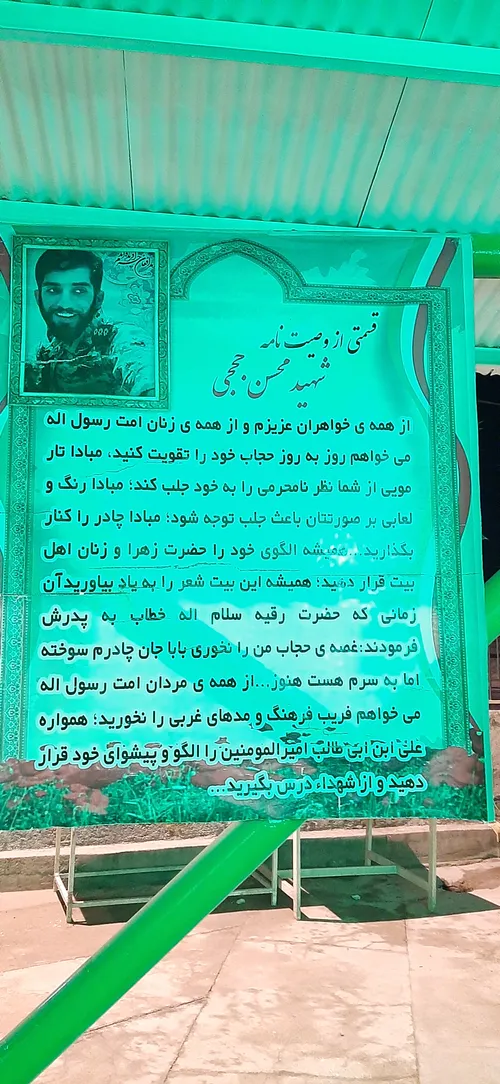 قسمتی از وصیت نامه
شهید محسن حججی
از همه ی خواهران عزیزم و از همه ی زنان امت رسول اله
می خواهم روز به روز حجاب خود را تقویت کنید، مبادا تار
مویی از شما نظر نامحرمی را به خود جلب کند؛ مبادا رنگ و
لعابی بر صورتتان باعث جلب توجه شود؛ مبادا چادر را کنار
بگذارید...همیشه الگوی خود را حضرت زهرا و زنان اهل
بیت قرار دهید؛ همیشه این بیت شعر را به یاد بیاوریدآن
زمانی که حضرت رقیه سلام اله خطاب به پدرش
فرمودند:غصه ی حجاب من را نخوری بابا جان چادرم سوخته
اما به سرم هست هنوز...از همه ی مردان امت رسول اله
می خواهم فریب فرهنگ و مدهای غربی را نخورید؛ همواره
علی ابن ابی طالب امیرالمومنین را الگو و پیشوای خود قرار
دهید و از شهداء درس بگیرید...